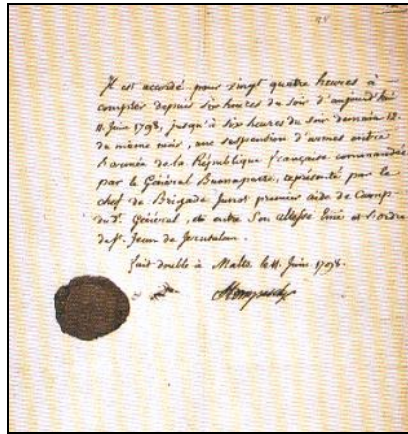 Il est accordé pour vingt quatre heures à
compter depuis six heures du soir d'aujourd'hui
11. Juin 1798, jusqu'à six heures du soir demain 12.
du même mois, une suspension d'armes entre
l'armée de la République française commandée
par le Général Buonaparte, représenté par le
chef de Brigade Junot premier aide de Camp
du d. Général, et entre Son Altesse Eme et l'ordre
de St. Jean de Jerusalem.
fait double à Malte le 11. Juin 1798.
Hompesch